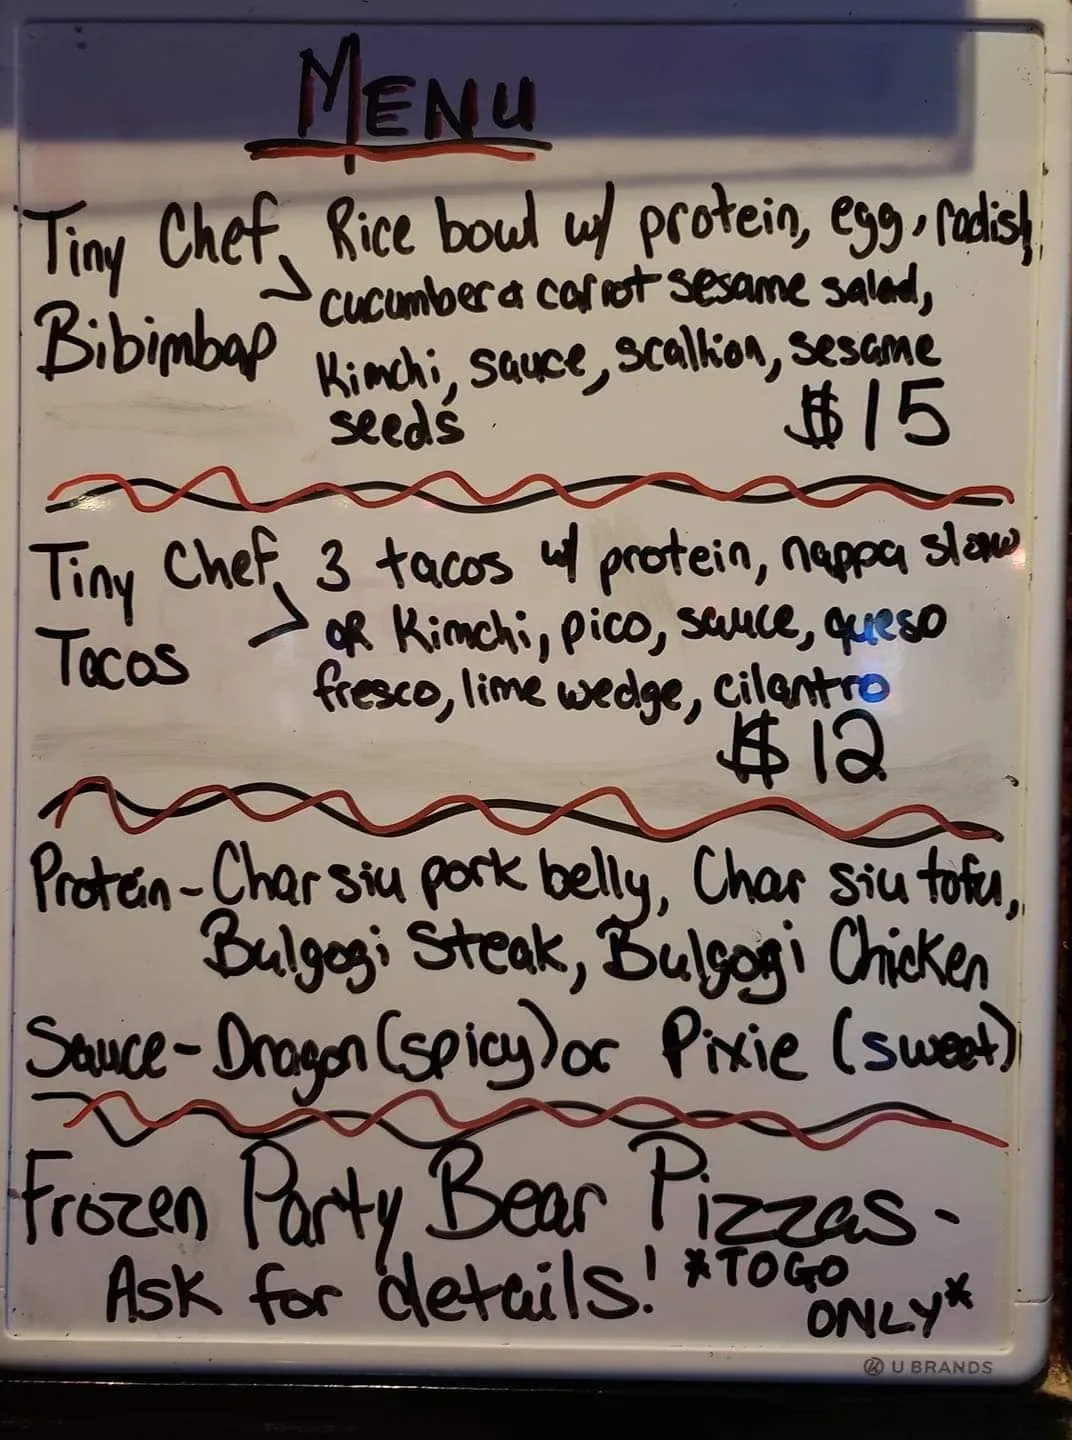 MENU
Tiny Chef Rice bowl w/ protein, egg, radish,
cucumber & carrot sesame salad,
Bibimbap Kimchi, sauce, scallion, sesame
seeds $15
Tiny Chef 3 tacos w/ protein, nappa slaw
Tacos OR Kimchi, pico, sauce, queso
fresco, lime wedge, cilantro
$12
Protein - Char siu pork belly, Char siu tofu,
Bulgogi Steak, Bulgogi Chicken
Sauce - Dragon (spicy) or Pixie (sweet)
Frozen Party Bear Pizzas -
Ask for details! *TOGO
ONLY*
U BRANDS